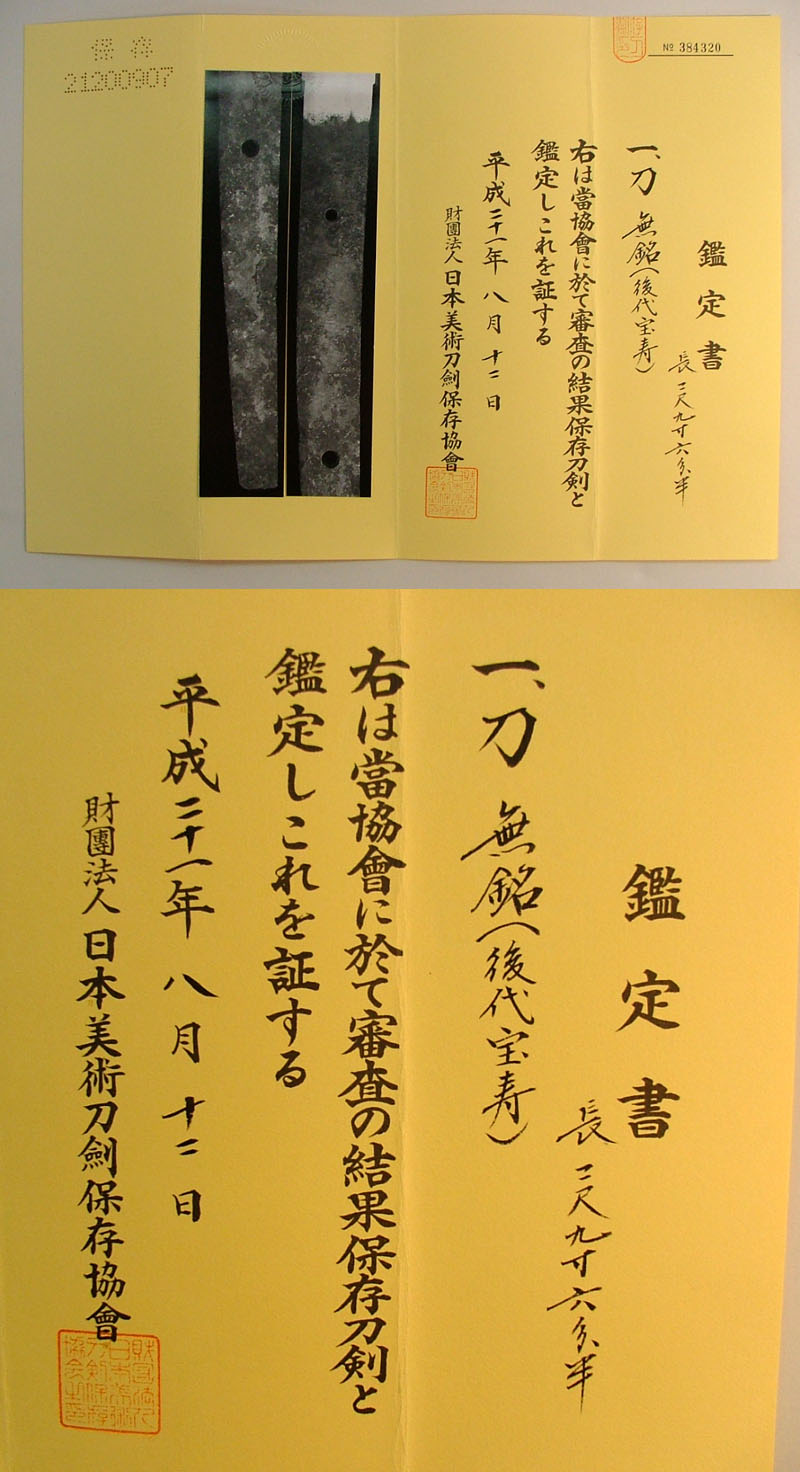 保存
21200907
№ 384320
鑑定書
長二尺九寸六分半
一、刀 無銘(後代宝寿)
右は當協會に於て審査の結果保存刀剣と
鑑定しこれを証する
平成二十一年 八月 十二日
財團法人 日本美術刀劍保存協會
鑑定書
長二尺九寸六分半
一、刀 無銘(後代宝寿)
右は當協會に於て審査の結果保存刀剣と
鑑定しこれを証する
平成二十一年 八月 十二日
財團法人 日本美術刀劍保存協會